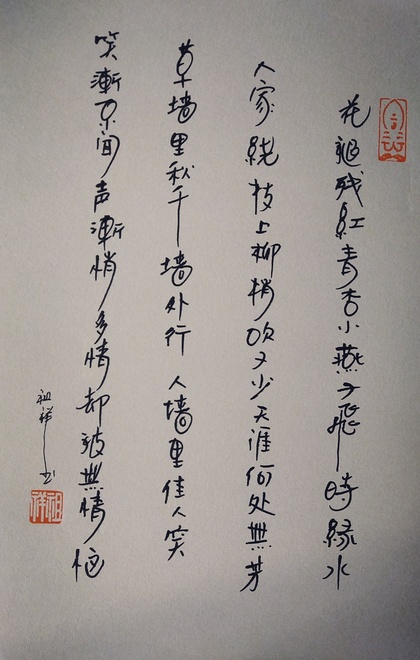 花褪残紅青杏小燕子飛時緑水
人家绕枝上柳梢吹又少天涯何处無芳
草墙里秋千墙外行人墙里佳人笑
笑漸不闻声漸悄多情却被無情恼
祖祥书
祖祥